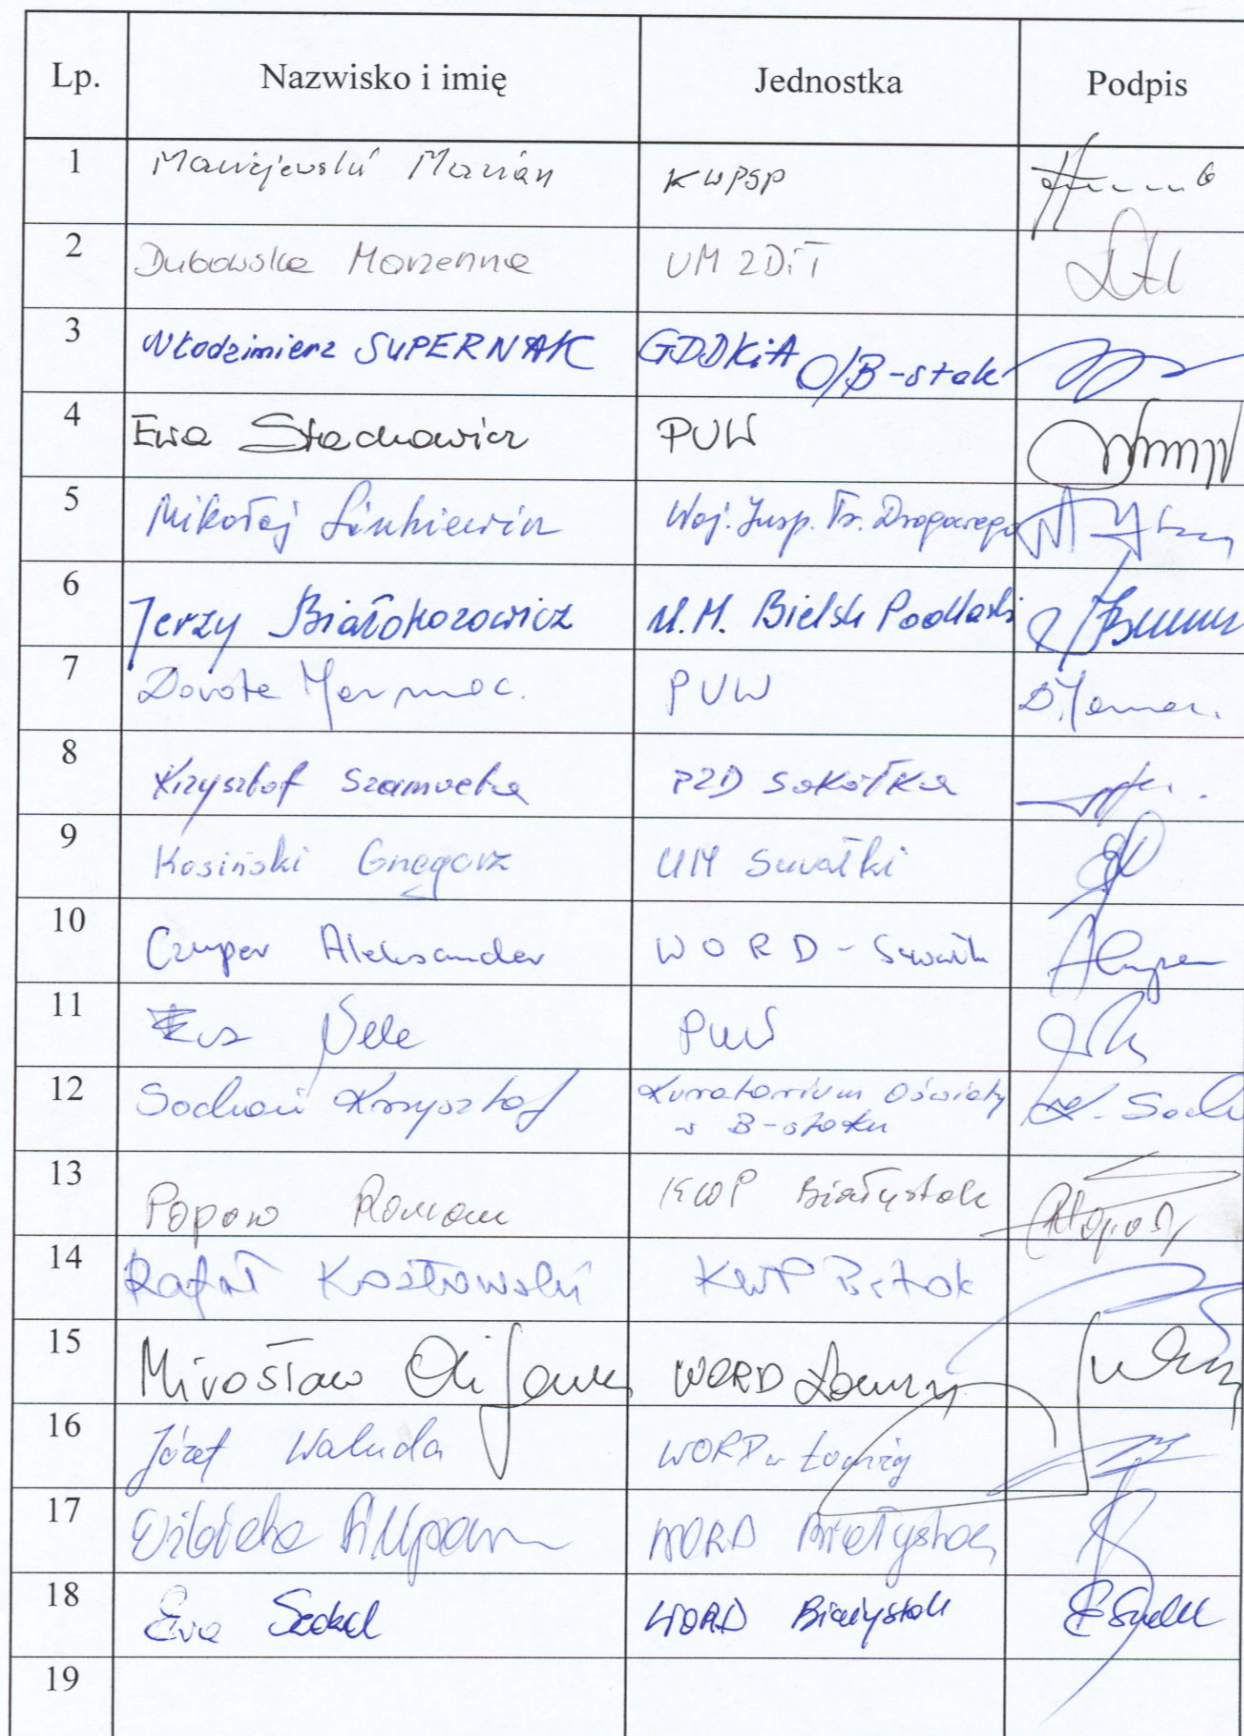 Lp. Nazwisko i imię Jednostka Podpis
1 Maciejewski Marian KWPSP
2 Dubowska Marzenna UM ZDiT
3 Włodzimierz SUPERNAK GDDKiA O/B-stok
4 Ewa Stachowicz PUW
5 Mikołaj Sinkiewicz Woj. Insp. Tr. Drogowego
6 Jerzy Białokozowicz U.M. Bielsk Podlaski
7 Dorota PUW
8 Krzysztof Szamocka PZD Sokółka
9 Kosiński Grzegorz UM Suwałki
10 Czuper Aleksander WORD - Suwałki
11 Ewa PUW
12 Sochoń Krzysztof Kuratorium Oświaty
w B-stoku K. Soch
13 Popow Roman KWP Białystok
14 Rafał Kozłowski KWP B-stok
15 Mirosław WORD Łomży
16 Józef Waluda WORD w Łomży
17 Elżbieta WORD Białystok
18 Ewa WORD Białystok
19